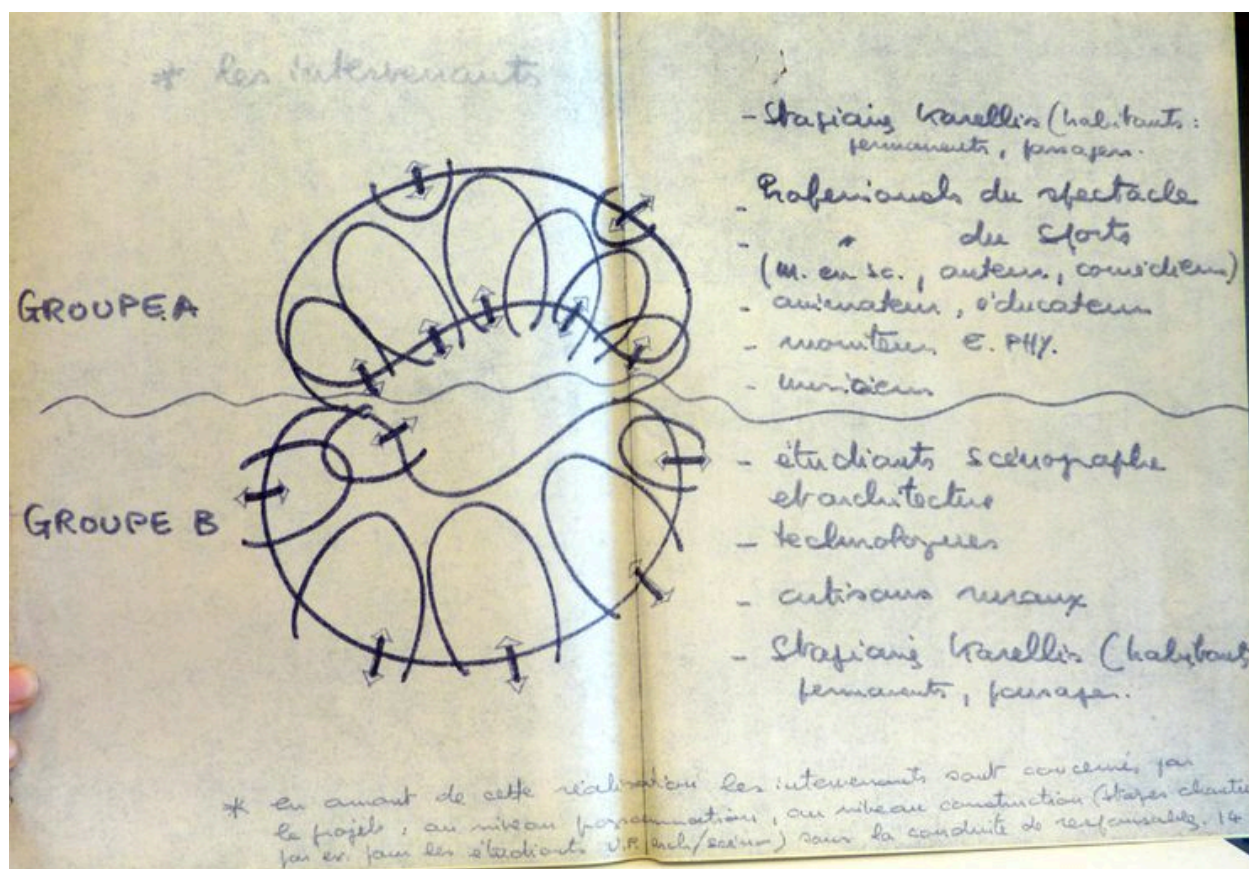 * les intervenants
- Stagiaires Karellis (habitants :
permanents, passagers.
- Professionnels du spectacle
- " du sports
(m. en sc., auteurs, comédiens)
GROUPE A
- animateurs, éducateurs
- moniteurs E. PHY.
- musiciens
- étudiants scénographe
et architecture
GROUPE B
- technologues
- artisans ruraux
- Stagiaires Karellis (habitants
permanents, passagers.
* en amont de cette réalisation les intervenants sont concernés par
le projet : au niveau programmation, au niveau construction (stages chantier
par ex. pour les étudiants U.P. arch/scéno) sous la conduite de responsables. 14